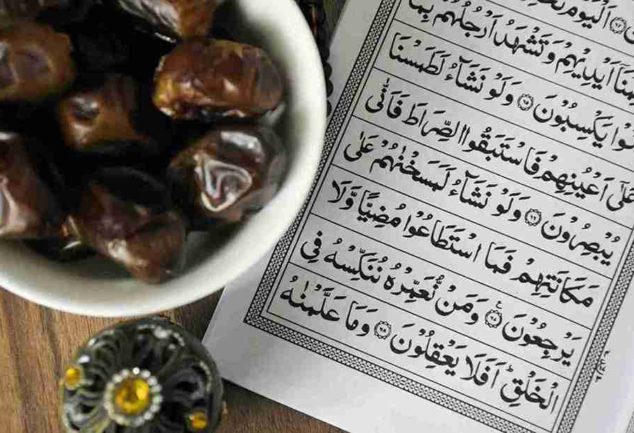 اَلْيَوْمَ
اَيْدِيْهِمْ وَتَشْهَدُ اَرْجُلُهُمْ بِمَا
يَكْسِبُوْنَ ﴿٦٥﴾ وَلَوْ نَشَآءُ لَطَمَسْنَا
عَلٰٓى اَعْيُنِهِمْ فَاسْتَبَقُوا الصِّرَاطَ فَاَنّٰى
يُبْصِرُوْنَ ﴿٦٦﴾ وَلَوْ نَشَآءُ لَمَسَخْنٰهُمْ عَلٰى
مَكَانَتِهِمْ فَمَا اسْتَطَاعُوْا مُضِيًّا وَّلَا
يَرْجِعُوْنَ ﴿٦٧﴾ وَمَنْ نُّعَمِّرْهُ نُنَكِّسْهُ فِى
الْخَلْقِ ؕ اَفَلَا يَعْقِلُوْنَ ﴿٦٨﴾ وَمَا عَلَّمْنٰهُ